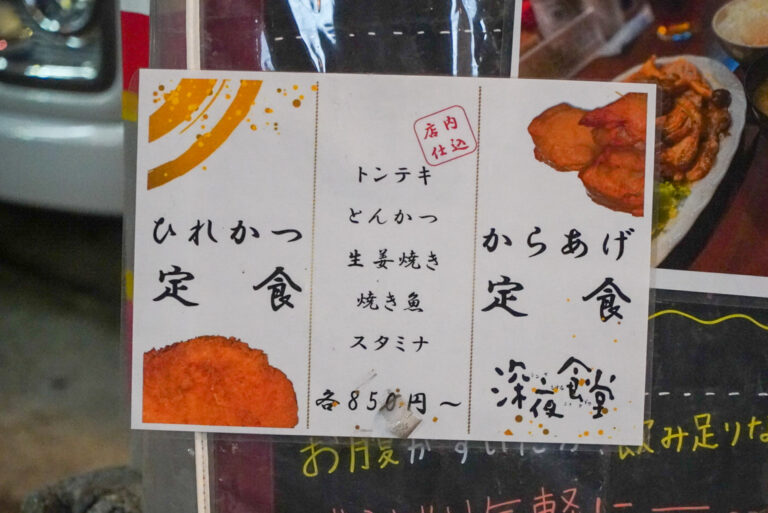 ひれかつ
定食
店内
仕込
トンテキ
とんかつ
生姜焼き
焼き魚
スタミナ
各850円～
からあげ
定食
深夜食堂
お腹がすいた
飲み足りな
気軽に